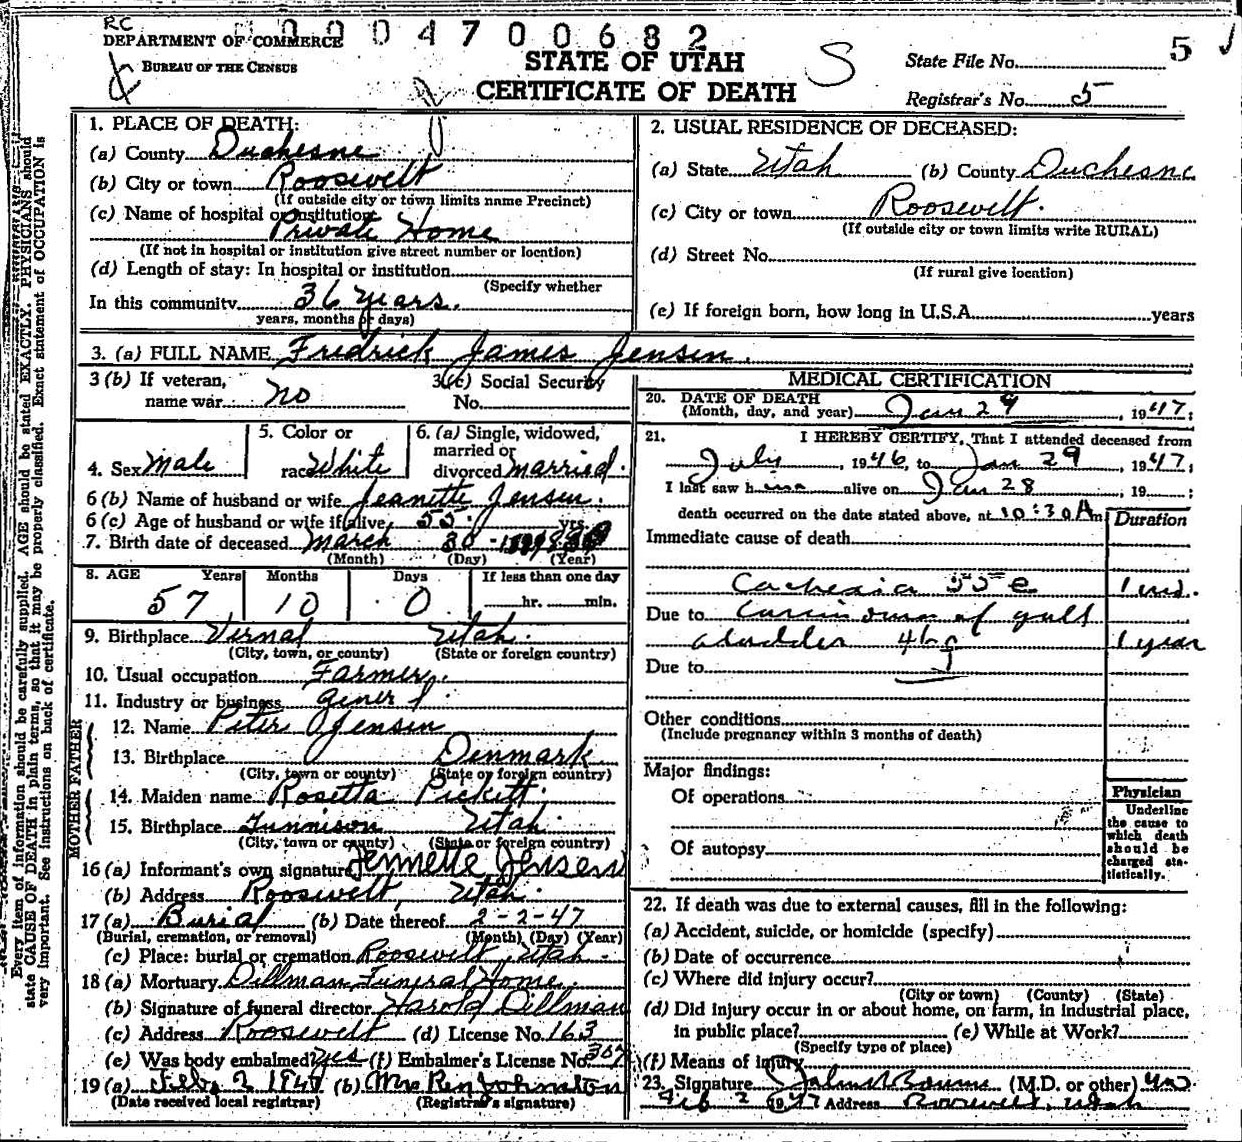 RC
DEPARTMENT OF COMMERCE
BUREAU OF THE CENSUS
0004700682
STATE OF UTAH
CERTIFICATE OF DEATH
S
5
State File No.
Registrar's No. 5
Every item of information should be carefully supplied. AGE should be stated EXACTLY. PHYSICIANS should
state CAUSE OF DEATH in plain terms, so that it may be properly classified. Exact statement of OCCUPATION is
very important. See instructions on back of certificate.
1. PLACE OF DEATH:
(a) County Duchesne
(b) City or town Roosevelt
(If outside city or town limits name Precinct)
(c) Name of hospital or institution
Private Home
(If not in hospital or institution give street number or location)
(d) Length of stay: In hospital or institution
(Specify whether
In this community 36 years.
years, months or days)
2. USUAL RESIDENCE OF DECEASED:
(a) State Utah (b) County Duchesne
(c) City or town Roosevelt.
(If outside city or town limits write RURAL)
(d) Street No.
(If rural give location)
(e) If foreign born, how long in U.S.A. years
3. (a) FULL NAME Fredrick James Jensen.
3 (b) If veteran, name war. no
3 (c) Social Security No.
4. Sex Male
5. Color or race White
6. (a) Single, widowed, married or divorced married.
6 (b) Name of husband or wife Jeanette Jensen.
6 (c) Age of husband or wife if alive, 55. yrs.
7. Birth date of deceased March 30
(Month) (Day) (Year)
8. AGE Years Months Days If less than one day
57 10 0 hr. min.
9. Birthplace Vernal Utah.
(City, town, or county) (State or foreign country)
10. Usual occupation Farmer.
11. Industry or business
FATHER
12. Name Peter Jensen
13. Birthplace Denmark
(City, town or county) (State or foreign country)
MOTHER
14. Maiden name Rosetta Pickett.
15. Birthplace Gunnison Utah.
(City, town or county) (State or foreign country)
16 (a) Informant's own signature Jennette Jensen
(b) Address Roosevelt, Utah.
17 (a) Burial (b) Date thereof 2-2-47
(Burial, cremation, or removal) (Month) (Day) (Year)
(c) Place: burial or cremation Roosevelt, Utah.
18 (a) Mortuary Dillman Funeral Home.
(b) Signature of funeral director Harold Dillman
(c) Address Roosevelt (d) License No. 163
(e) Was body embalmed? yes (f) Embalmer's License No. 307
19 (a) Feb. 2 1947 (b) Mrs Ren Johnston
(Date received local registrar) (Registrar's signature)
MEDICAL CERTIFICATION
20. DATE OF DEATH
(Month, day, and year) Jan 29, 1947;
21. I HEREBY CERTIFY, That I attended deceased from
July, 1946, to Jan 29, 1947;
I last saw him alive on Jan 28, 19 ;
death occurred on the date stated above, at 10:30 A m
Duration
Immediate cause of death
Cachexia 55 e 1 mo.
Due to Carcinoma of gall
bladder 46 1 year
Due to
Other conditions
(Include pregnancy within 3 months of death)
Major findings:
Of operations
Of autopsy
Physician
Underline
the cause to
which death
should be
charged sta-
tistically.
22. If death was due to external causes, fill in the following:
(a) Accident, suicide, or homicide (specify)
(b) Date of occurrence
(c) Where did injury occur?
(City or town) (County) (State)
(d) Did injury occur in or about home, on farm, in industrial place,
in public place? (e) While at Work?
(Specify type of place)
(f) Means of injury
23. Signature (M.D. or other) MD
Feb 2 1947 Address Roosevelt, Utah